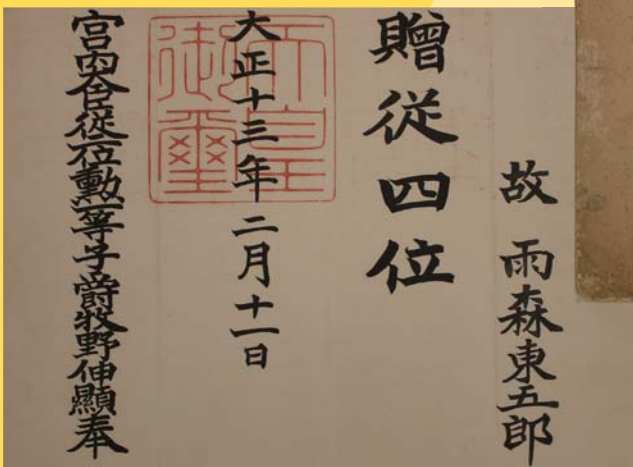 故 雨森東五郎
贈従四位
大正十三年二月十一日
天皇御璽
宮内大臣従二位勲一等子爵牧野伸顯奉